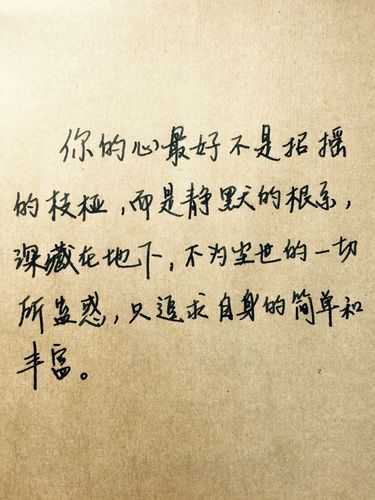 你的心最好不是招摇
的枝桠，而是静默的根系，
深藏在地下，不为尘世的一切
所蛊惑，只追求自身的简单和
丰富。